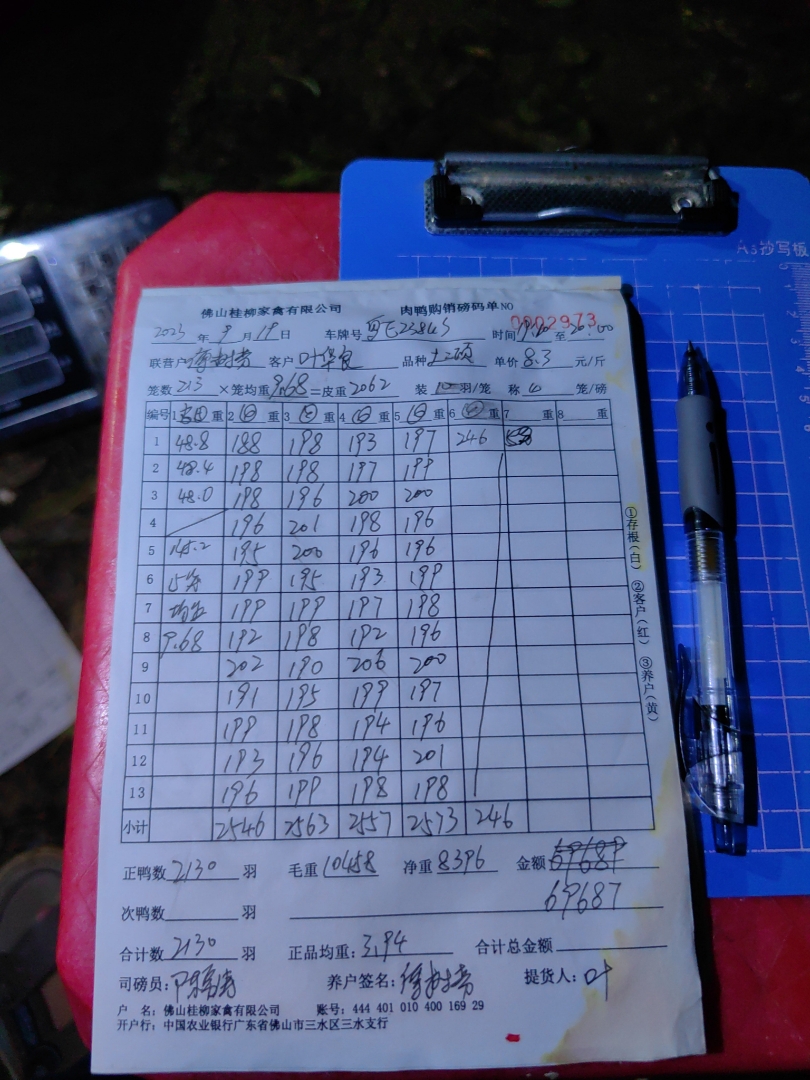 A5抄写板
佛山桂柳家禽有限公司 肉鸭购销磅码单 NO 0002973
2023年9月19日 车牌号 粤E23843 时间 至20:00
联营户 客户 叶华良 品种 单价 8.3 元/斤
笼数 213 ×笼均重 9.68 =皮重 2062 装 10 羽/笼 称 笼/磅
编号 1 重 2 重 3 重 4 重 5 重 6 重 7 重 8 重
1 48.8 188 198 193 197 246
2 48.4 198 198 197 199
3 48.0 198 196 200 200
4 196 201 198 196
5 145.2 195 200 196 196
6 15 199 195 193 199
7 199 199 197 198
8 9.68 192 198 192 196
9 202 190 206 200
10 191 195 199 197
11 199 198 194 196
12 193 196 194 201
13 196 199 198 198
小计 2546 2563 2557 2573 246
正鸭数 2130 羽 毛重 10458 净重 8396 金额 69687
次鸭数 羽 69687
合计数 2130 羽 正品均重: 3.94 合计总金额
司磅员: 养户签名: 提货人: 叶
户 名: 佛山桂柳家禽有限公司 账号: 444 401 010 400 169 29
开户行: 中国农业银行广东省佛山市三水区三水支行
①存根(白) ②客户(红) ③养户(黄)